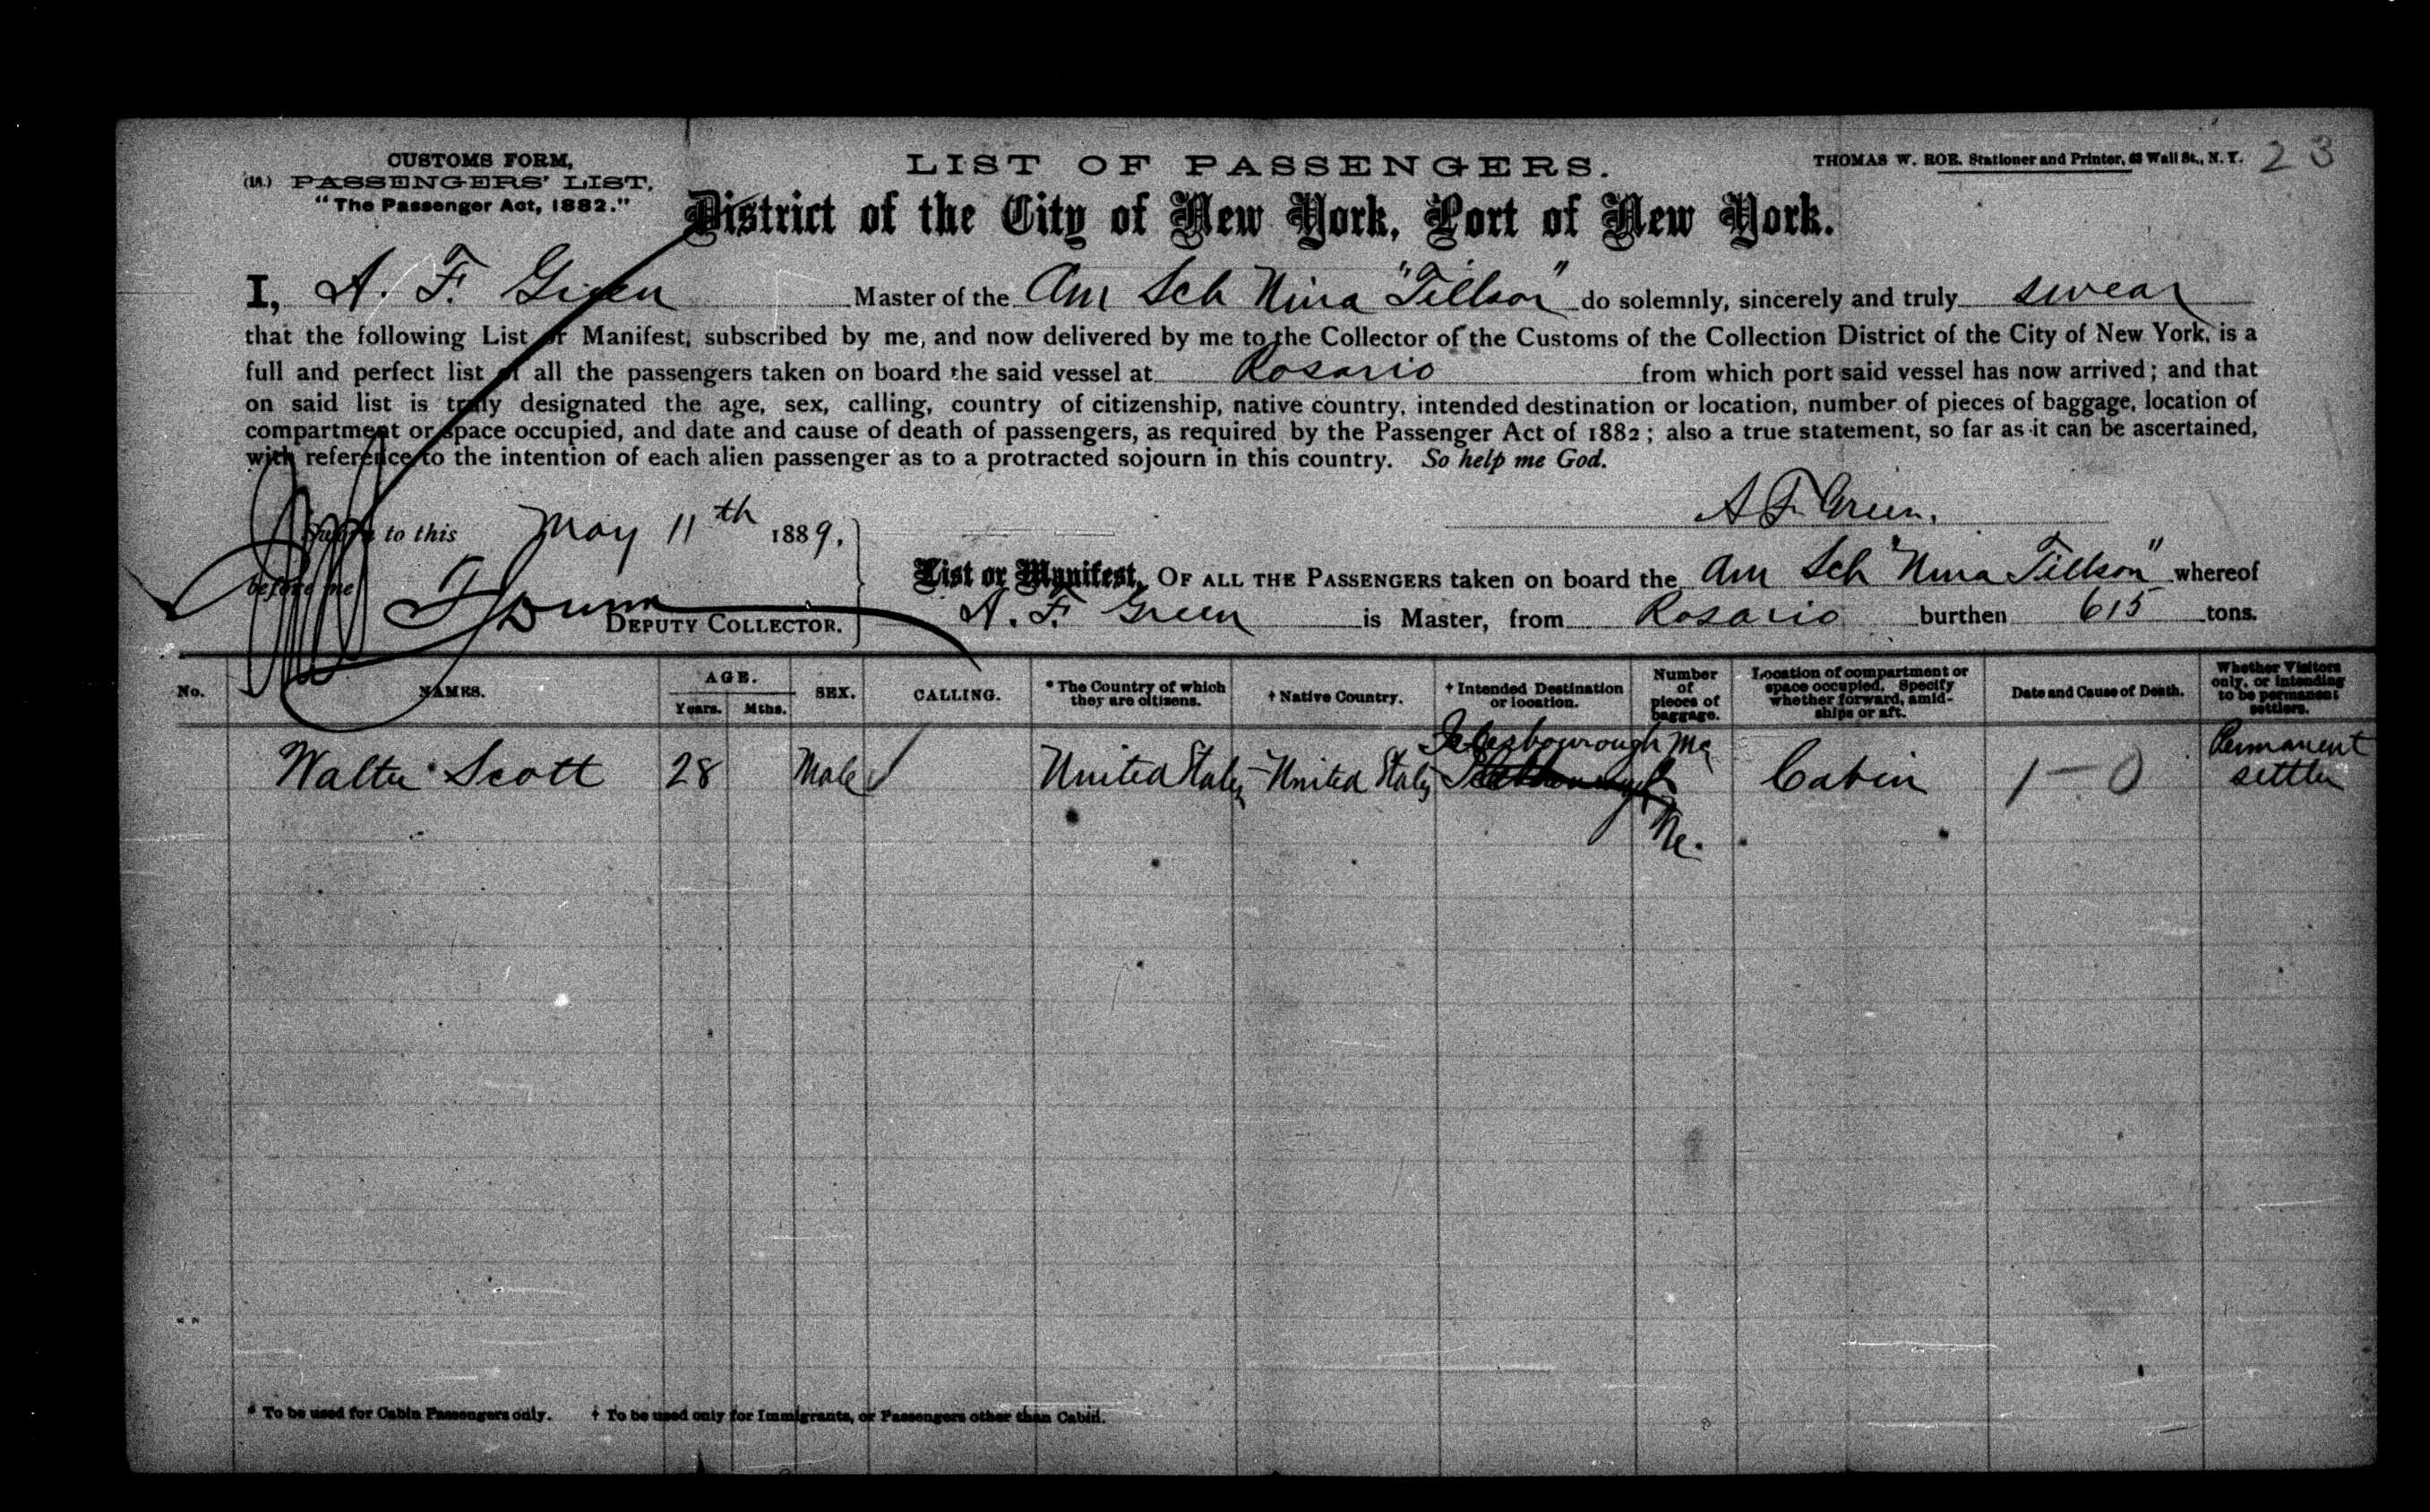 CUSTOMS FORM,
(18.) PASSENGERS' LIST,
"The Passenger Act, 1882."
LIST OF PASSENGERS.
THOMAS W. ROE, Stationer and Printer, 63 Wall St., N. Y.
23
District of the City of New York, Port of New York.
I, A. F. Green Master of the Am Sch Nina "Tillson" do solemnly, sincerely and truly swear
that the following List or Manifest, subscribed by me, and now delivered by me to the Collector of the Customs of the Collection District of the City of New York, is a
full and perfect list of all the passengers taken on board the said vessel at Rosario from which port said vessel has now arrived; and that
on said list is truly designated the age, sex, calling, country of citizenship, native country, intended destination or location, number of pieces of baggage, location of
compartment or space occupied, and date and cause of death of passengers, as required by the Passenger Act of 1882; also a true statement, so far as it can be ascertained,
with reference to the intention of each alien passenger as to a protracted sojourn in this country. So help me God.
A F Green.
Sworn to this May 11th 1889,
before me
DEPUTY COLLECTOR.
List or Manifest, OF ALL THE PASSENGERS taken on board the Am Sch "Nina Tillson" whereof
A. F. Green is Master, from Rosario burthen 615 tons.
No. NAMES. AGE. Years. Mths. SEX. CALLING. * The Country of which they are citizens. † Native Country. † Intended Destination or location. Number of pieces of baggage. Location of compartment or space occupied. Specify whether forward, amidships or aft. Date and Cause of Death. Whether Visitors only, or intending to be permanent settlers.
Walter Scott 28 Male United States United States Me Cabin 1 - 0 Permanent settler
Me.
* To be used for Cabin Passengers only. † To be used only for Immigrants, or Passengers other than Cabin.